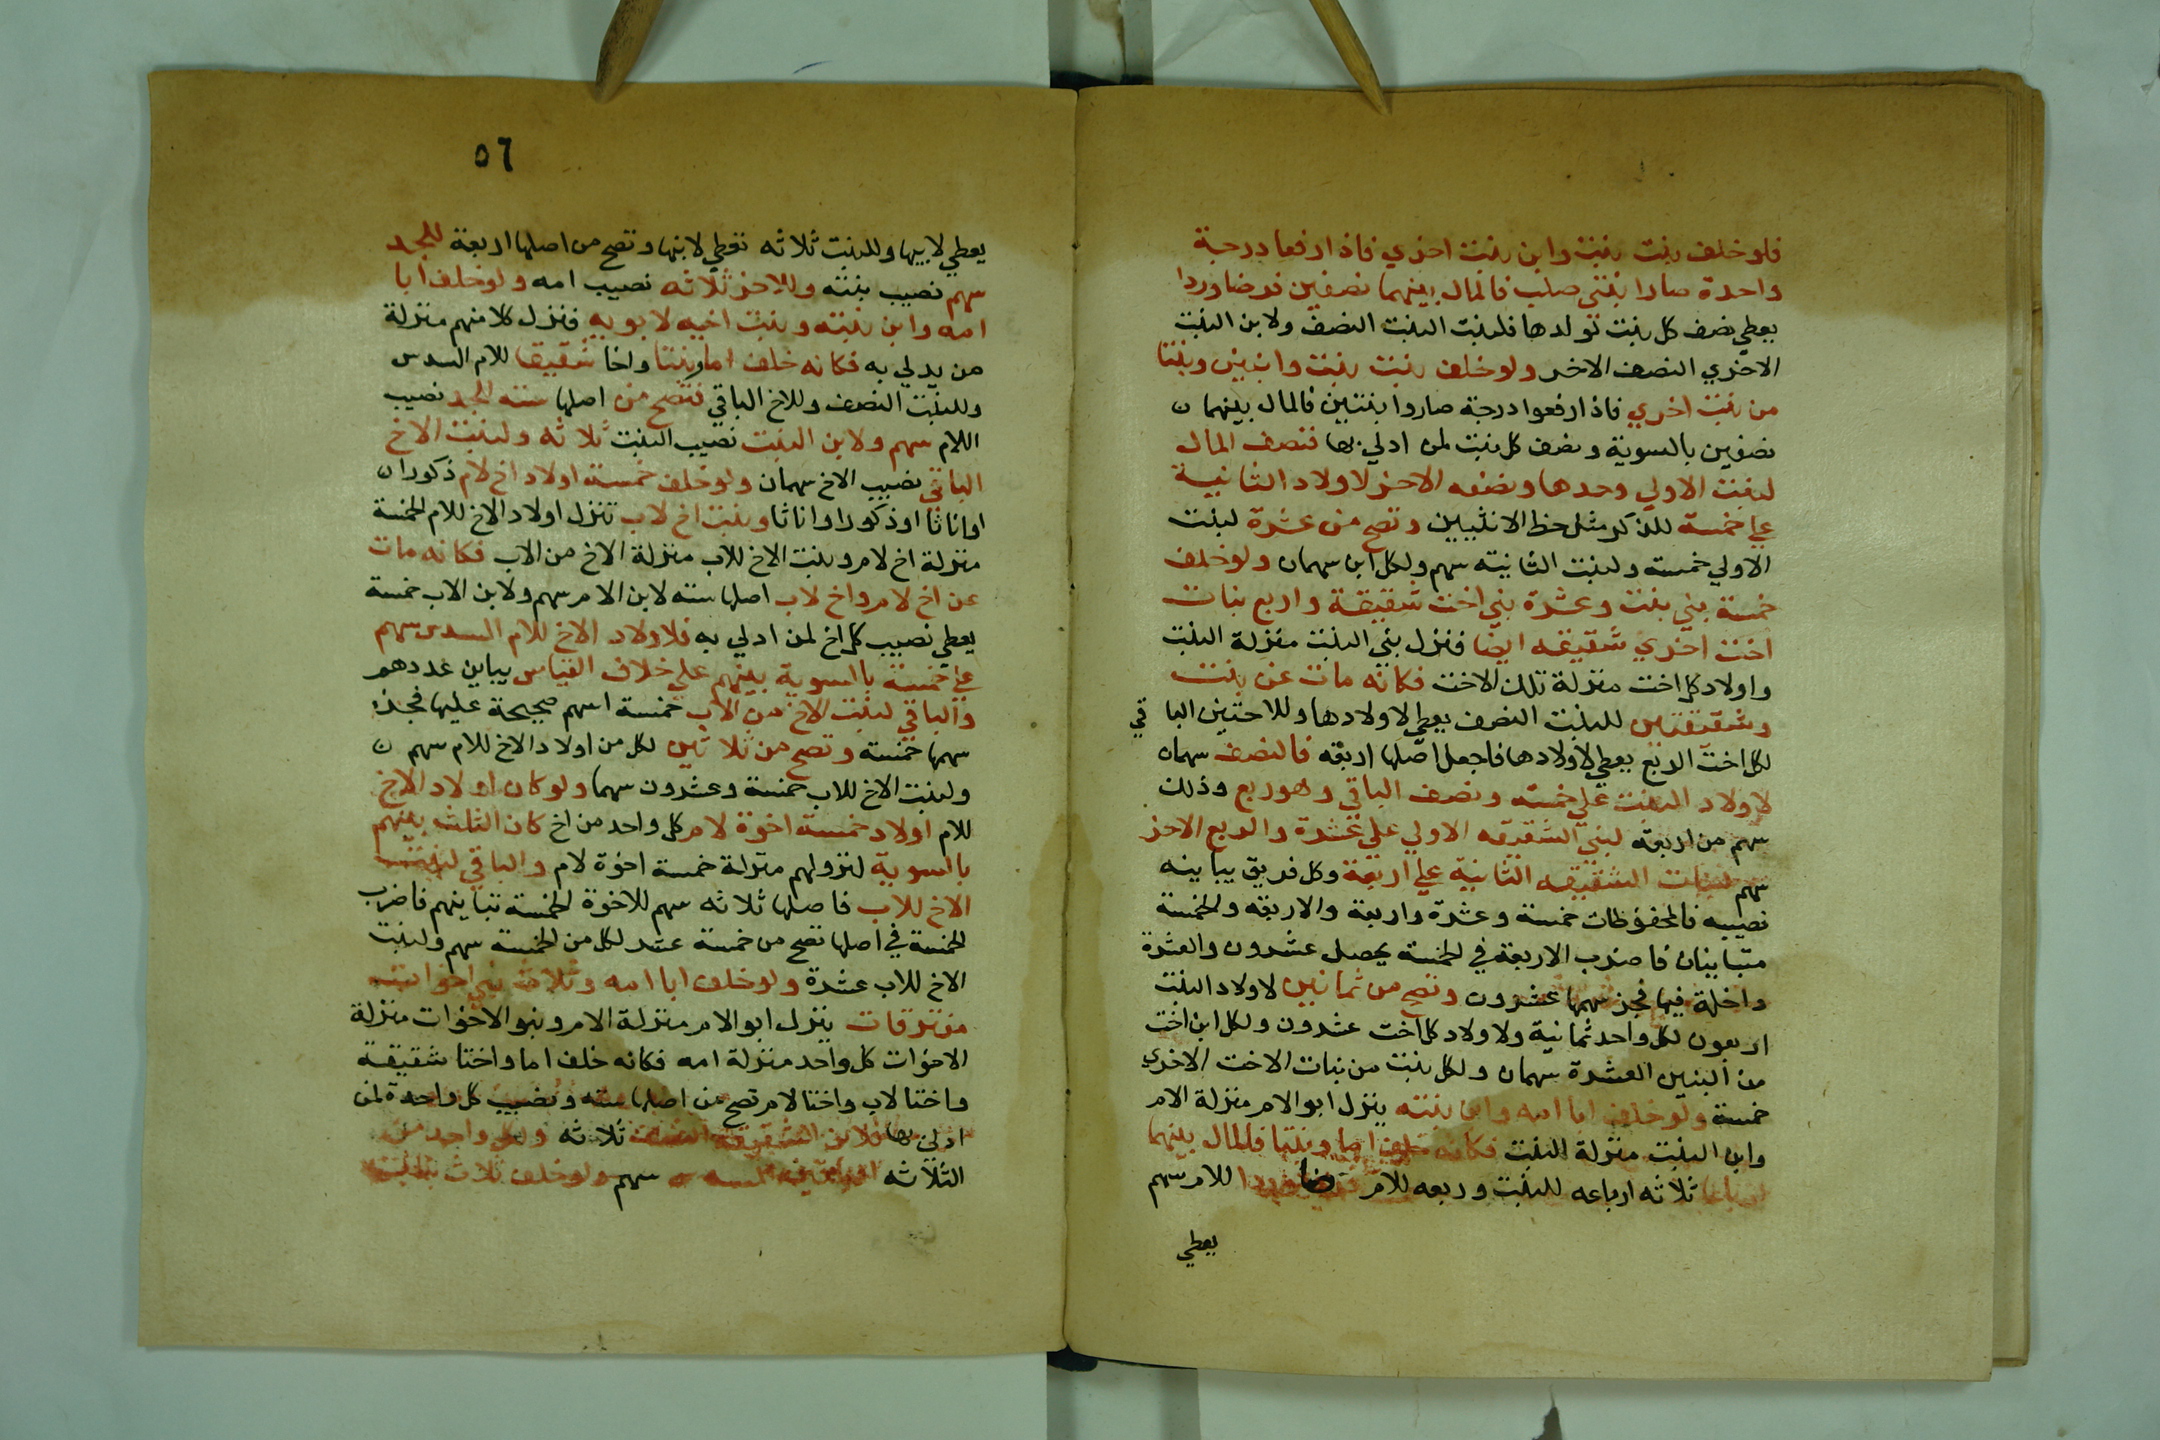 فلو خلف بنت بنت وابن بنت اخري فاذا ارفعا درجة
واحدة صارا بنتي صلب فالمال بينهما نصفين فرضا وردا
يعطي نصف كل بنت لولدها فلبنت البنت النصف ولابن البنت
الاخري النصف الاخر ولو خلف بنت بنت وابنين وبنتا
من بنت اخري فاذا ارفعوا درجة صاروا بنتين فالمال بينهمان
نصفين بالسوية ونصف كل بنت لمن ادلي بها فنصف المال
لبنت الاولي وحدها ونصفه الاخر لاولاد الثانية
علي خمسة للذكر مثل حظ الانثيين وتصح من عشرة لبنت
الاولي خمسه ولبنت الثانيه سهم ولكل ابن سهمان ولو خلف
خمسة بني بنت وعشرة بني اخت شقيقة واربع بنات
اخت اخري شقيقه ايضا فنزل بني البنت منزلة البنت
واولاد كل اخت منزلة تلك الاخت فكانه مات عن بنت
وشقيقتين للبنت النصف يعطي لاولادها وللاختين الباقي
لكل اخت الربع يعطي لاولادها فاجعل اصلها اربعه فالنصف سهمان
لاولاد البنت علي خمسه ونصف الباقي وهو ربع وذلك
سهم من اربعه لبني الشقيقه الاولي علي عشرة والربع الاخر
سهم لبنات الشقيقه الثانية علي اربعة وكل فريق يباينه
نصيبه فالمحفوظات خمسة وعشرة واربعة والاربعه والخمسة
متباينان فاضرب الاربعة في الخمسة يحصل عشرون والعشرة
داخلة فيها فجز سهمها عشرون وتصح من ثمانين لاولاد البنت
اربعون لكل واحد ثمانية ولاولاد كل اخت عشرون ولكل ابن اخت
من البنين العشرة سهمان ولكل بنت من بنات الاخت الاخري
خمسة ولو خلف ابا امه وابن بنته ينزل ابو الام منزلة الام
وابن البنت منزلة البنت فكانه خلف اما وبنتا فالمال بينهما
ارباعا ثلاثه ارباعه للبنت وربعه للام فرضا وردا للام سهم
يعطي
٥٦
يعطي لابيها وللبنت ثلاثه تعطي لابنها وتصح من اصلها اربعة للجد
سهم نصيب بنته وللاخر ثلاثه نصيب امه ولو خلف ابا
امه وابن بنته وبنت اخيه لابويه فنزل كلا منهم منزلة
من يدلي به فكانه خلف اما وبنتا واخا شقيقا للام السدس
وللبنت النصف وللاخ الباقي فتصح من اصلها سته للجد نصيب
اللام سهم ولابن البنت نصيب البنت ثلاثه ولبنت الاخ
الباقي نصيب الاخ سهمان ولو خلف خمسة اولاد اخ لام ذكوران
اواناثا اوذكورا واناثا وبنت اخ لاب تنزل اولاد الاخ للام الخمسة
منزلة اخ لام وبنت الاخ للاب منزلة الاخ من الاب فكانه مات
عن اخ لام واخ لاب اصلها سته لابن الام سهم ولابن الاب خمسة
يعطي نصيب كل اخ لمن ادلي به فلاولاد الاخ للام السدس سهم
علي خمسة بالسوية بينهم علي خلاف القياس يباين عددهم
والباقي لبنت الاخ من الاب خمسة اسهم صحيحة عليها فجذ
سهمها خمسة وتصح من ثلاثين لكل من اولاد الاخ للام سهم ن
ولبنت الاخ للاب خمسة وعشرون سهما ولو كان اولاد الاخ
للام اولاد خمسة اخوة لام كل واحد من اخ كان الثلث بينهم
بالسوية لنزولهم منزلة خمسة اخوة لام والباقي لبنت
الاخ للاب فاصلها ثلاثه سهم للاخوة الخمسة تباينهم فاضرب
الخمسة في اصلها تصح من خمسة عشر لكل من الخمسة سهم ولبنت
الاخ للاب عشرة ولو خلف ابا امه وثلاث بني اخوات
مفترقات ينزل ابو الام منزلة الام وبنو الاخوات منزلة
الاخوات كل واحد منزلة امه فكانه خلف اما واختا شقيقة
واختا لاب واختا لام تصح من اصلها سته ونصيب كل واحدة لمن
ادلي بها فلابن الشقيقة النصف ثلاثه ولكل واحد من
الثلاثه سهم ولو خلف ثلاث